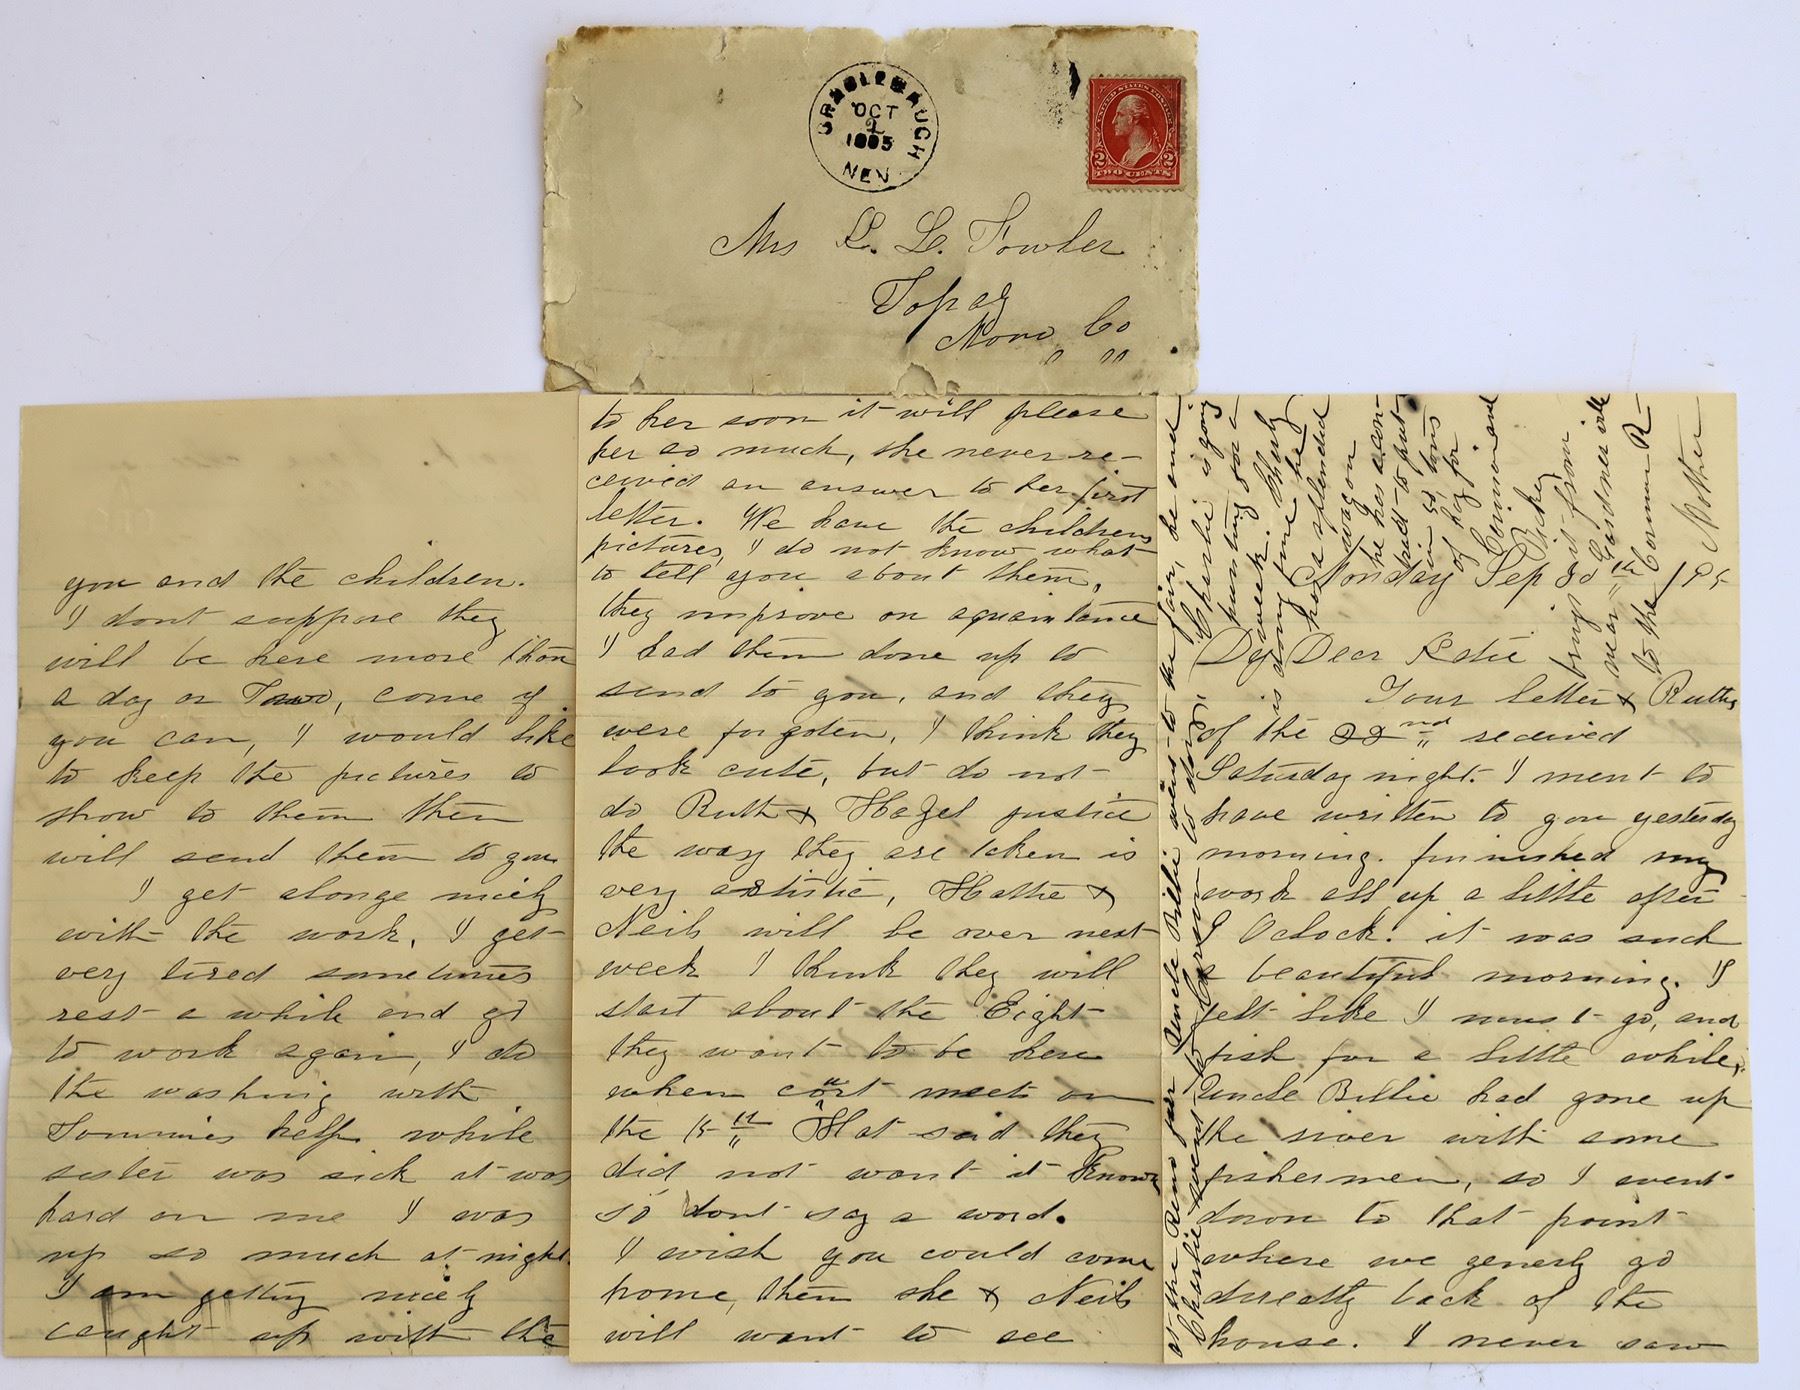 CRADLEBAUGH
OCT
2
1895
NEV
UNITED STATES POSTAGE
2 2
TWO CENTS
Mrs L. L. Fowler
Topaz
Mono Co
" "
you and the children.
I dont suppose they
will be here more than
a day or Two, come if
you can, I would like
to keep the pictures to
show to them then
will send them to you
I get alonge nicely
with the work, I get
very tired sometimes
rest a while and go
to work again, I do
the washing with
Tommies help. while
sister was sick it was
hard on me I was
up so much at night.
I am getting nicely
caught up with the
to her soon it will please
her so much, she never re-
ceived an answer to her first
letter. We have the childrens
pictures, I do not know what
to tell you about them,
they improve on aquaintance
I had them done up to
send to you, and they
were forgoten, I think they
look cute, but do not
do Ruth & Hazel justice
the way they are taken is
very artistic, Hattie &
Neils will be over next
week I think they will
start about the Eight
they want to be here
when court meets on
the 15th Hat said they
did not want it known
so dont say a word.
I wish you could come
home, then she & Neils
will want to see
Monday Sep 30th /95
My Dear Katie
Your letter & Ruths
of the 22nd received
Saturday night. I ment to
have written to you yesterday
morning. finnished my
work all up a little after
9 Oclock. it was such
a beautiful morning. I
felt like I must go, and
fish for a little while,
Uncle Billie had gone up
the river with some
fishermen, so I went
down to that point
where we generly go
directly back of the
house. I never saw
at the Reno fair Uncle Billie was to the fair, he and
Charlie went to Carson to day,
Charlie is going
hunting for a
week. Charly
is doing fine he
has a splendid
wagon
he has a con-
tract to put
in 50 tons
of hay for
Corinne and
Dickey
brings it from
near Gardnerville
to the Carson R-
Mother